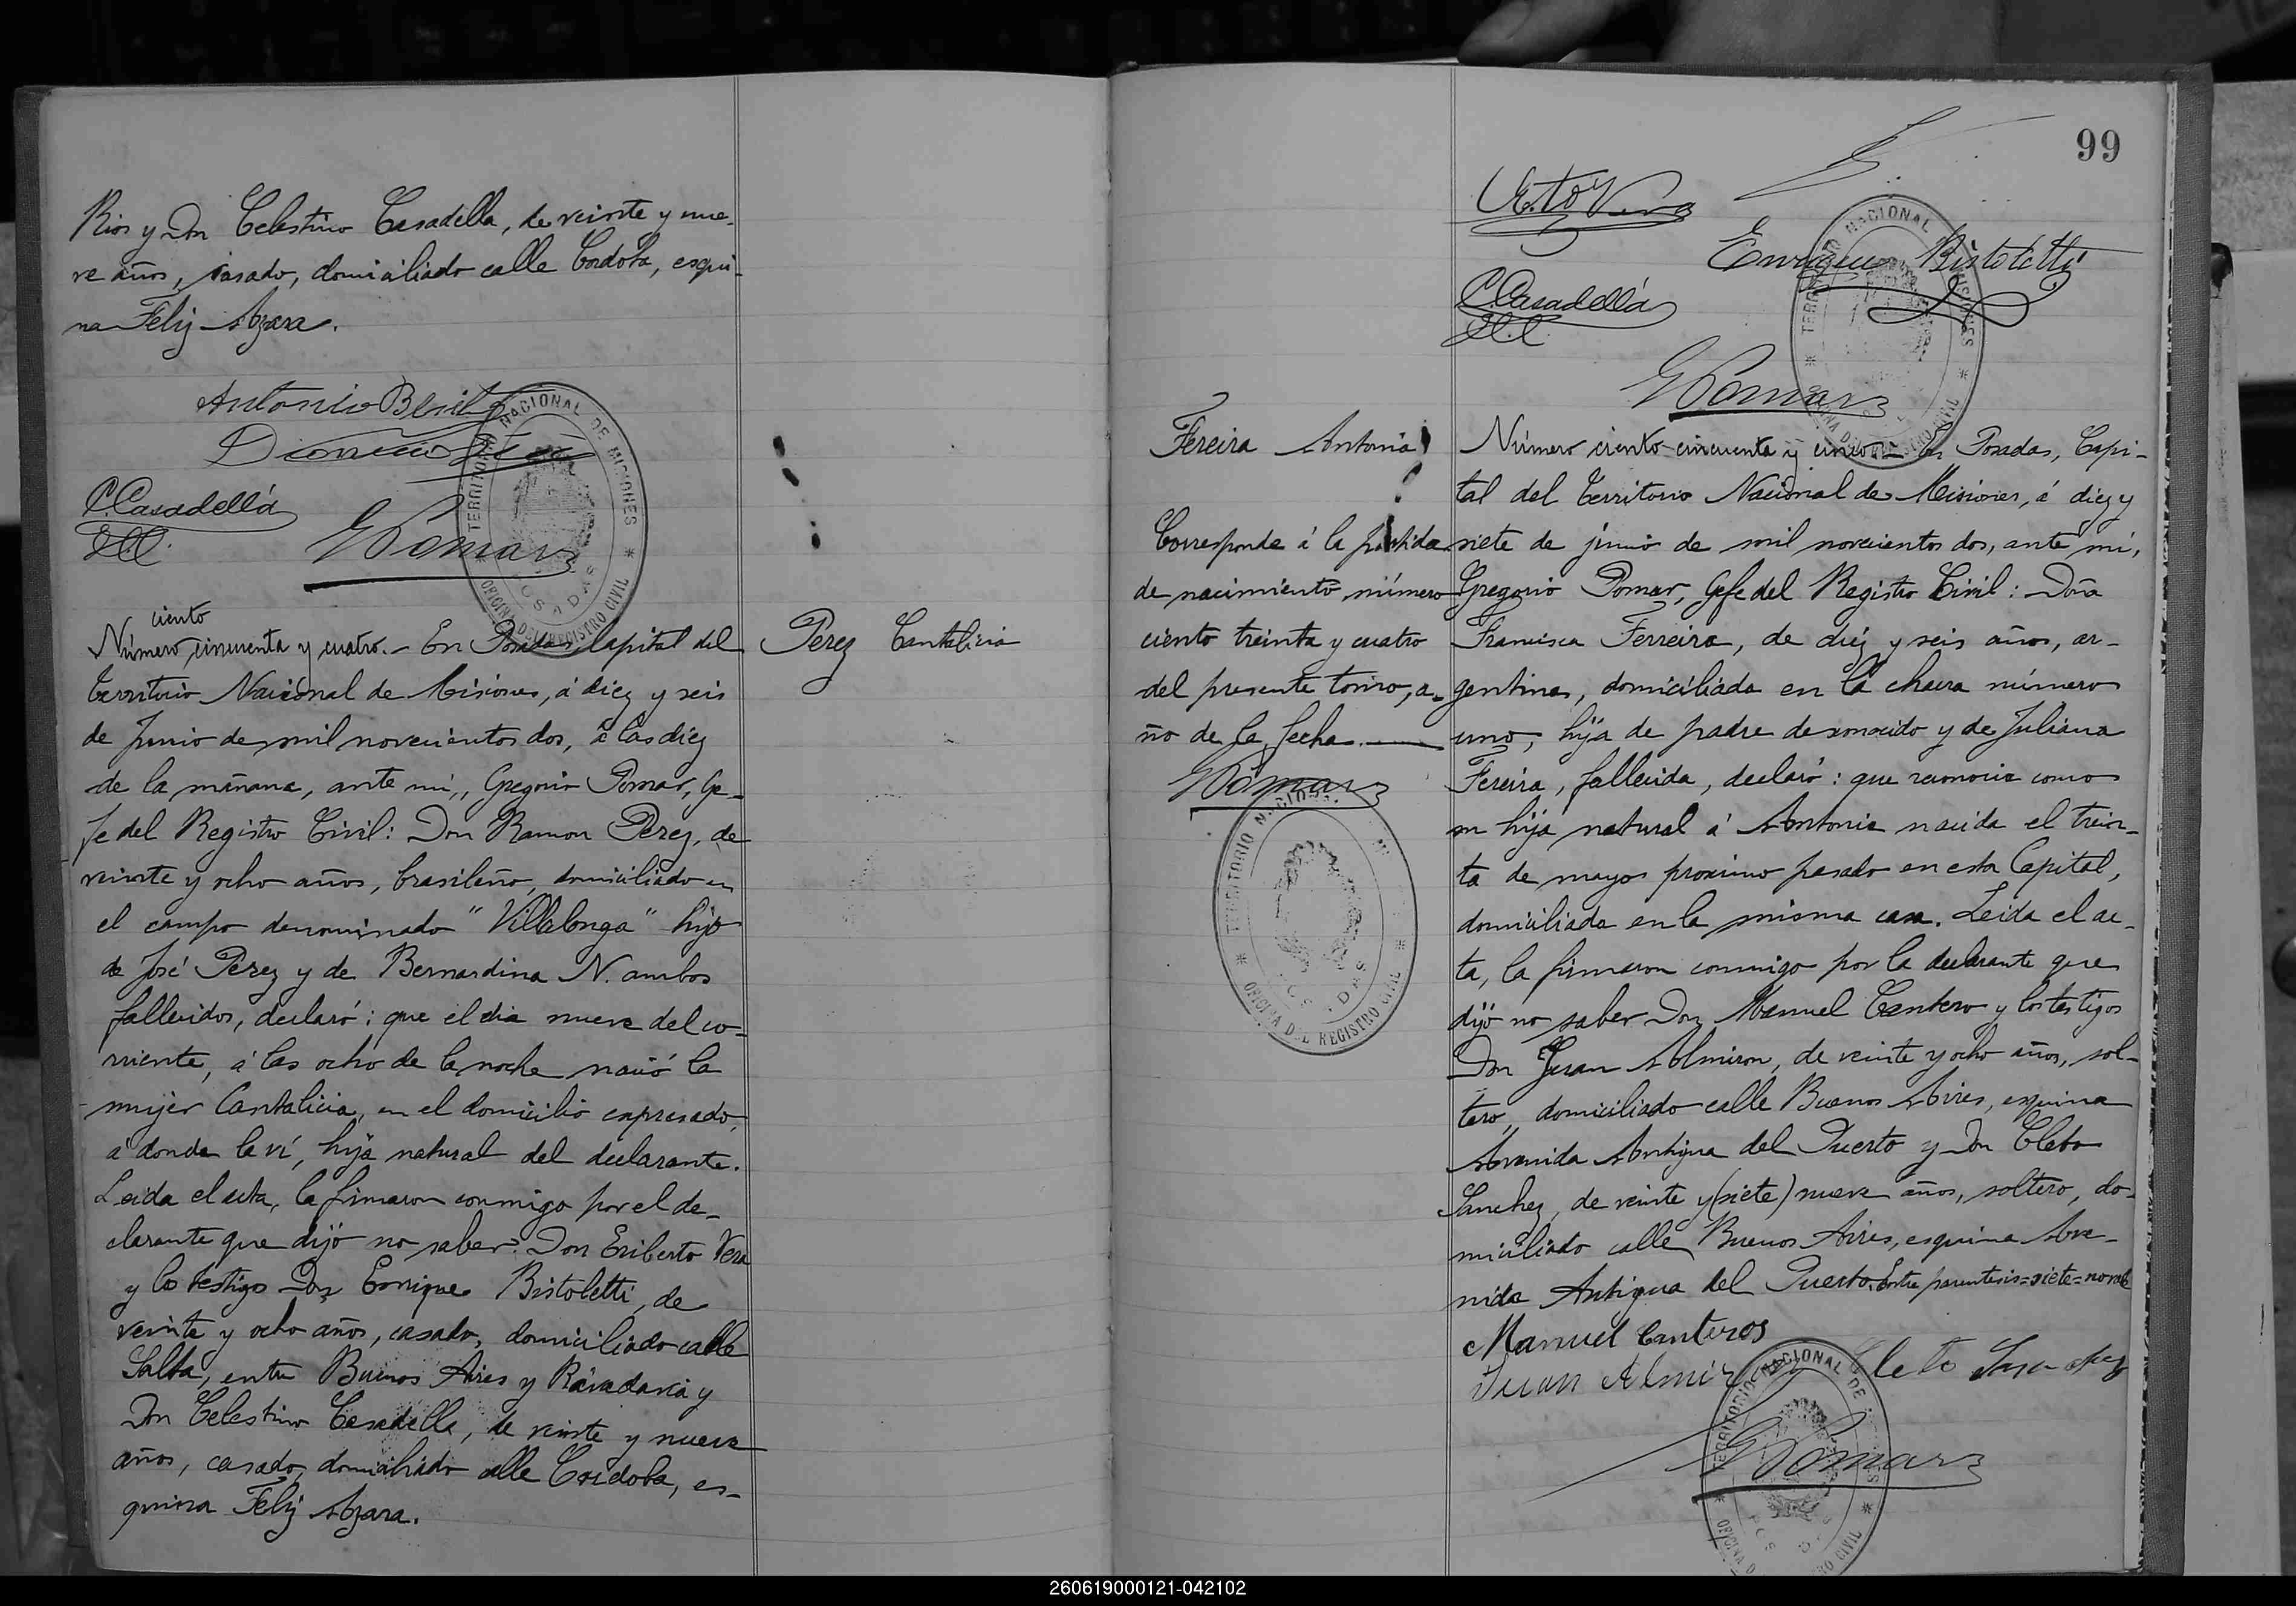 Rios y Don Celestino Casadella, de veinte y nue-
ve años, casado, domiciliado calle Cordoba, esqui-
na Feliz Azara.
Antonio Benit
C Casadella
GPomar
ciento
Número cincuenta y cuatro.- En Posadas, Capital del
Territorio Nacional de Misiones, á diez y seis
de Junio de mil novecientos dos, á las diez
de la mañana, ante mi,, Gregorio Pomar, Ge-
fe del Registro Civil: Don Ramon Perez, de
veinte y ocho años, brasileño, domiciliado en
el campo denominado "Villalonga" hijo
de José Perez y de Bernardina N. ambos
fallecidos, declaró: que el dia nueve del co-
rriente, á las ocho de la noche nació la
mujer Cantalicia, en el domicilio expresado,
á donde la ví, hija natural del declarante.
Leida el acta, la firmaron conmigo por el de-
clarante que dijo no saber: Don Eriberto Vera
y los testigos Don Enrique Bistoletti, de
veinte y ocho años, casado, domiciliado calle
Salta, entre Buenos Aires y Rivadavia y
Don Celestino Casadella, de veinte y nueve
años, casado, domiciliado calle Cordoba, es-
quina Feliz Azara.
TERRITORIO NACIONAL DE MISIONES
POSADAS
OFICINA DEL REGISTRO CIVIL
Perez Cantalicia
99
E.to Vera
Enrique Bistoletti
C Casadella
GPomar
TERRITORIO NACIONAL DE MISIONES
OFICINA DEL REGISTRO CIVIL
Fereira Antonia
Corresponde á la partida
de nacimiento número
ciento treinta y cuatro
del presente tomo, a-
ño de la fecha.
GPomar
TERRITORIO NACIONAL
POSADAS
OFICINA DEL REGISTRO CIVIL
Número ciento cincuenta y cinco.- En Posadas, Capi-
tal del Territorio Nacional de Misiones, á diez y
siete de junio de mil novecientos dos, ante mi,
Gregorio Pomar, Gefe del Registro Civil: Doña
Francisca Ferreira, de diez y seis años, ar-
gentina, domiciliada en la chacra número
uno, hija de padre desconocido y de Juliana
Fereira, fallecida, declaró: que reconocia como
su hija natural á Antonia nacida el trein-
ta de mayo proximo pasado en esta Capital,
domiciliada en la misma casa. Leida el ac-
ta, la firmaron conmigo por la declarante que
dijo no saber Don Manuel Cantero y los testigos
Don Juan Almiron, de veinte y ocho años, sol-
tero, domiciliado calle Buenos Aires, esquina
Avenida Antigua del Puerto y Don Cleto
Sanchez, de veinte y (siete) nueve años, soltero, do-
miciliado calle Buenos Aires, esquina Ave-
nida Antigua del Puerto. Entre parentesis=siete=no vale
Manuel Canteros
Juan Almir
Cleto Sanchez
GPomar
TERRITORIO NACIONAL DE
OFICINA
260619000121-042102